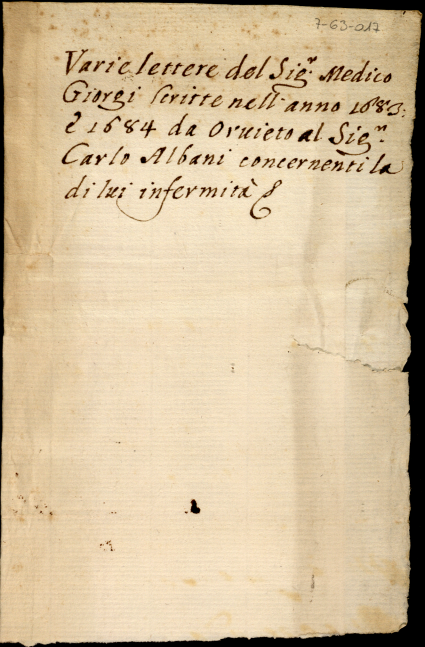 7-63-017
Varie lettere del Sig.r Medico
Giorgi scritte nell'anno 1683:
e 1684 da Orvieto al Sig.r
Carlo Albani concernenti la
di lui infermità